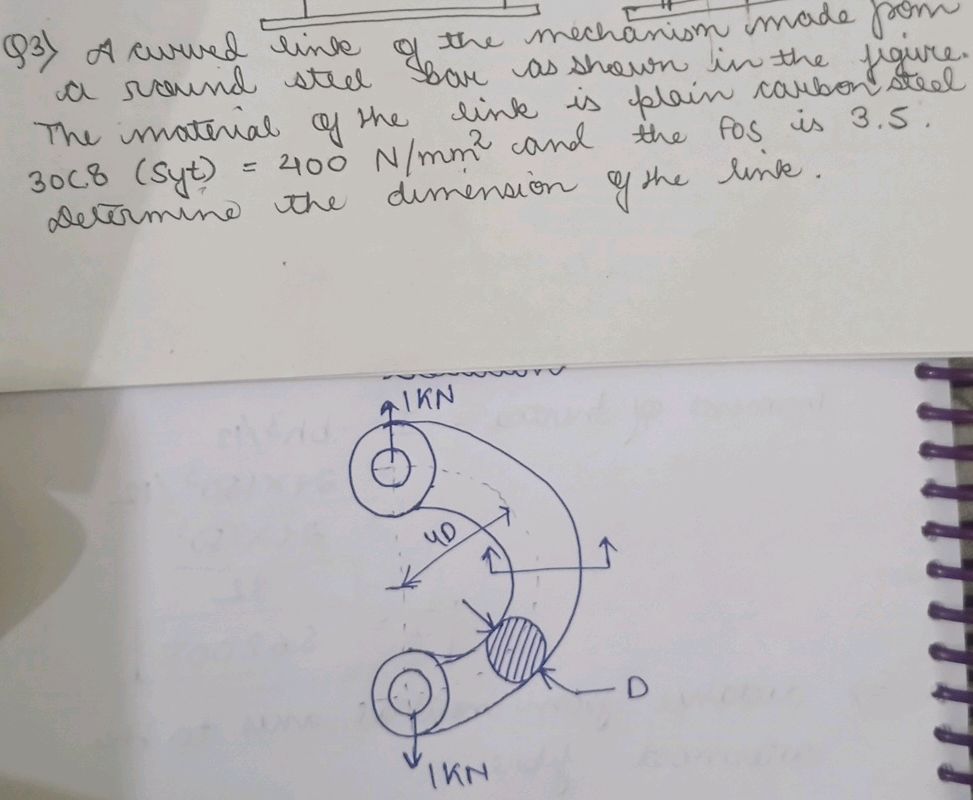 Q3) A curved link of the mechanism made from
a round steel bar as shown in the figure.
The material of the link is plain carbon steel
30C8 (Syt) = 400 N/mm² and the FOS is 3.5.
Determine the dimension of the link.
1KN
4D
D
1KN